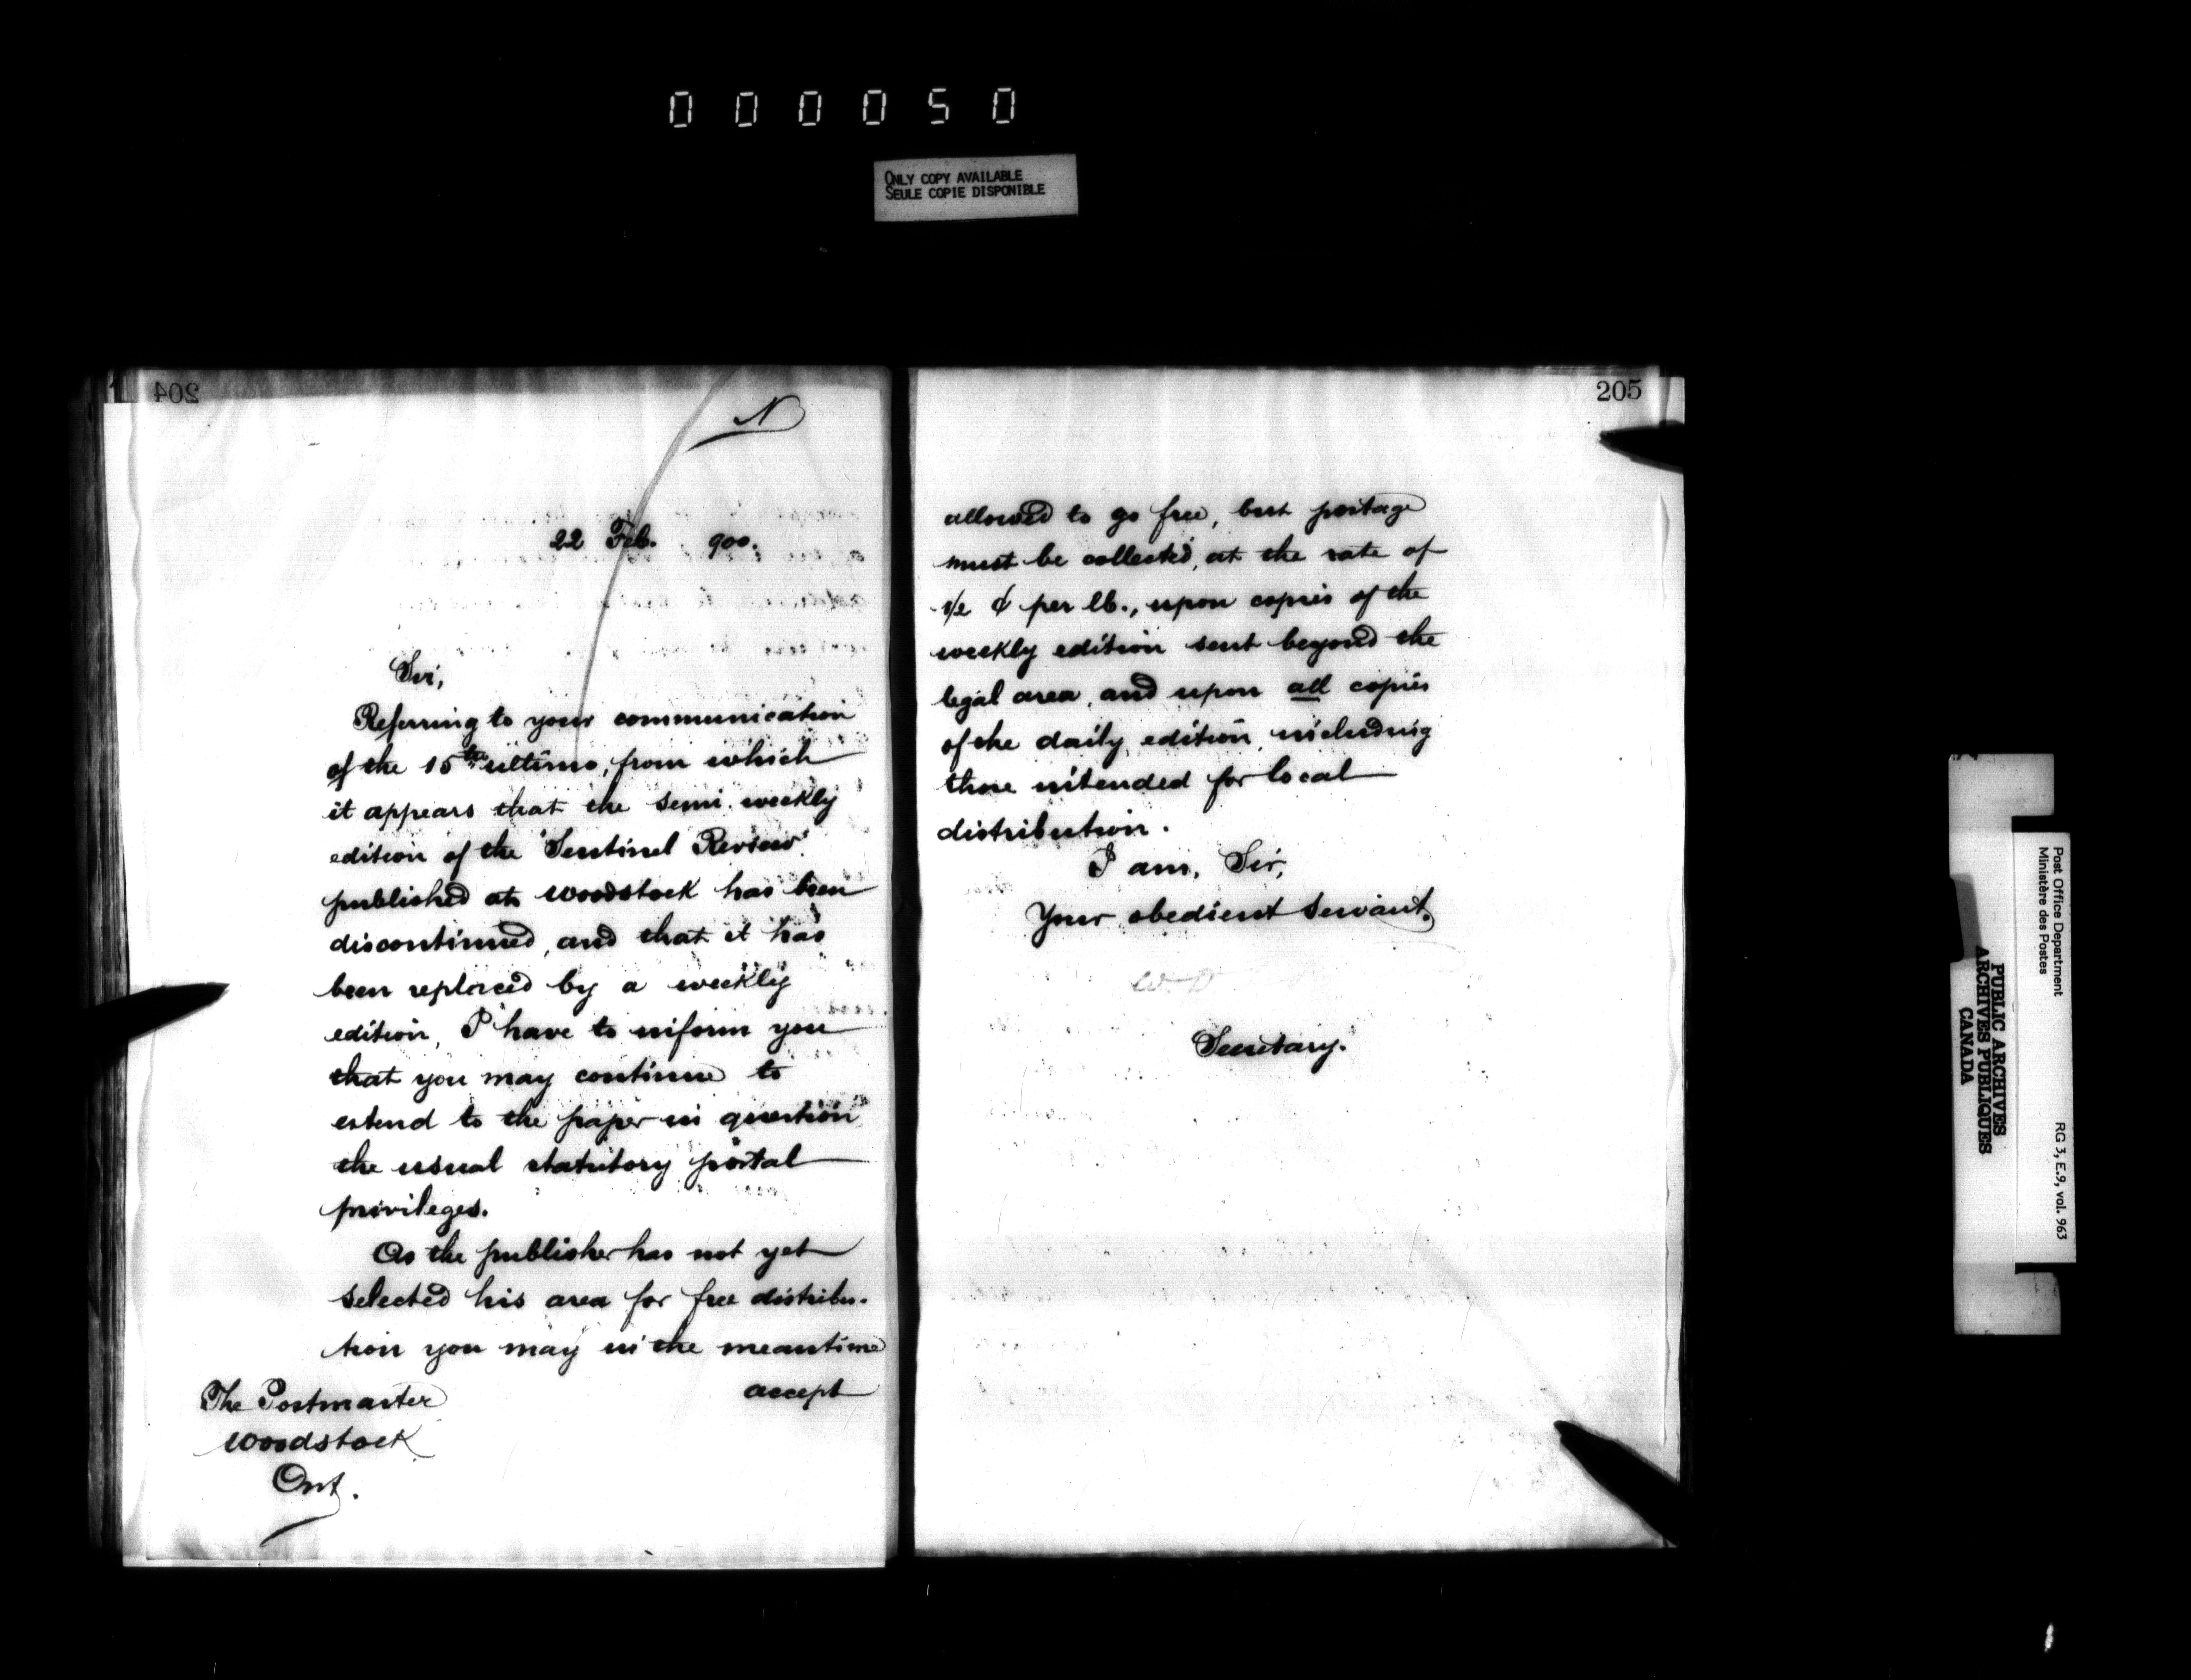 000050
ONLY COPY AVAILABLE
SEULE COPIE DISPONIBLE
204
N
22 Feb. 900.
Sir,
Referring to your communication
of the 15th ultimo, from which
it appears that the semi-weekly
edition of the "Sentinel Review"
published at Woodstock has been
discontinued, and that it has
been replaced by a weekly
edition, I have to inform you
that you may continue to
extend to the paper in question
the usual statutory postal
privileges.
As the publisher has not yet
selected his area for free distribu-
tion you may in the meantime
accept
The Postmaster
Woodstock
Ont.
205
allowed to go free, but postage
must be collected, at the rate of
¢ per lb., upon copies of the
weekly edition sent beyond the
legal area, and upon all copies
of the daily edition, including
those intended for local
distribution.
I am, Sir,
Your obedient servant,
Secretary.
Post Office Department
Ministère des Postes
RG 3, E.9, vol. 963
PUBLIC ARCHIVES
ARCHIVES PUBLIQUES
CANADA